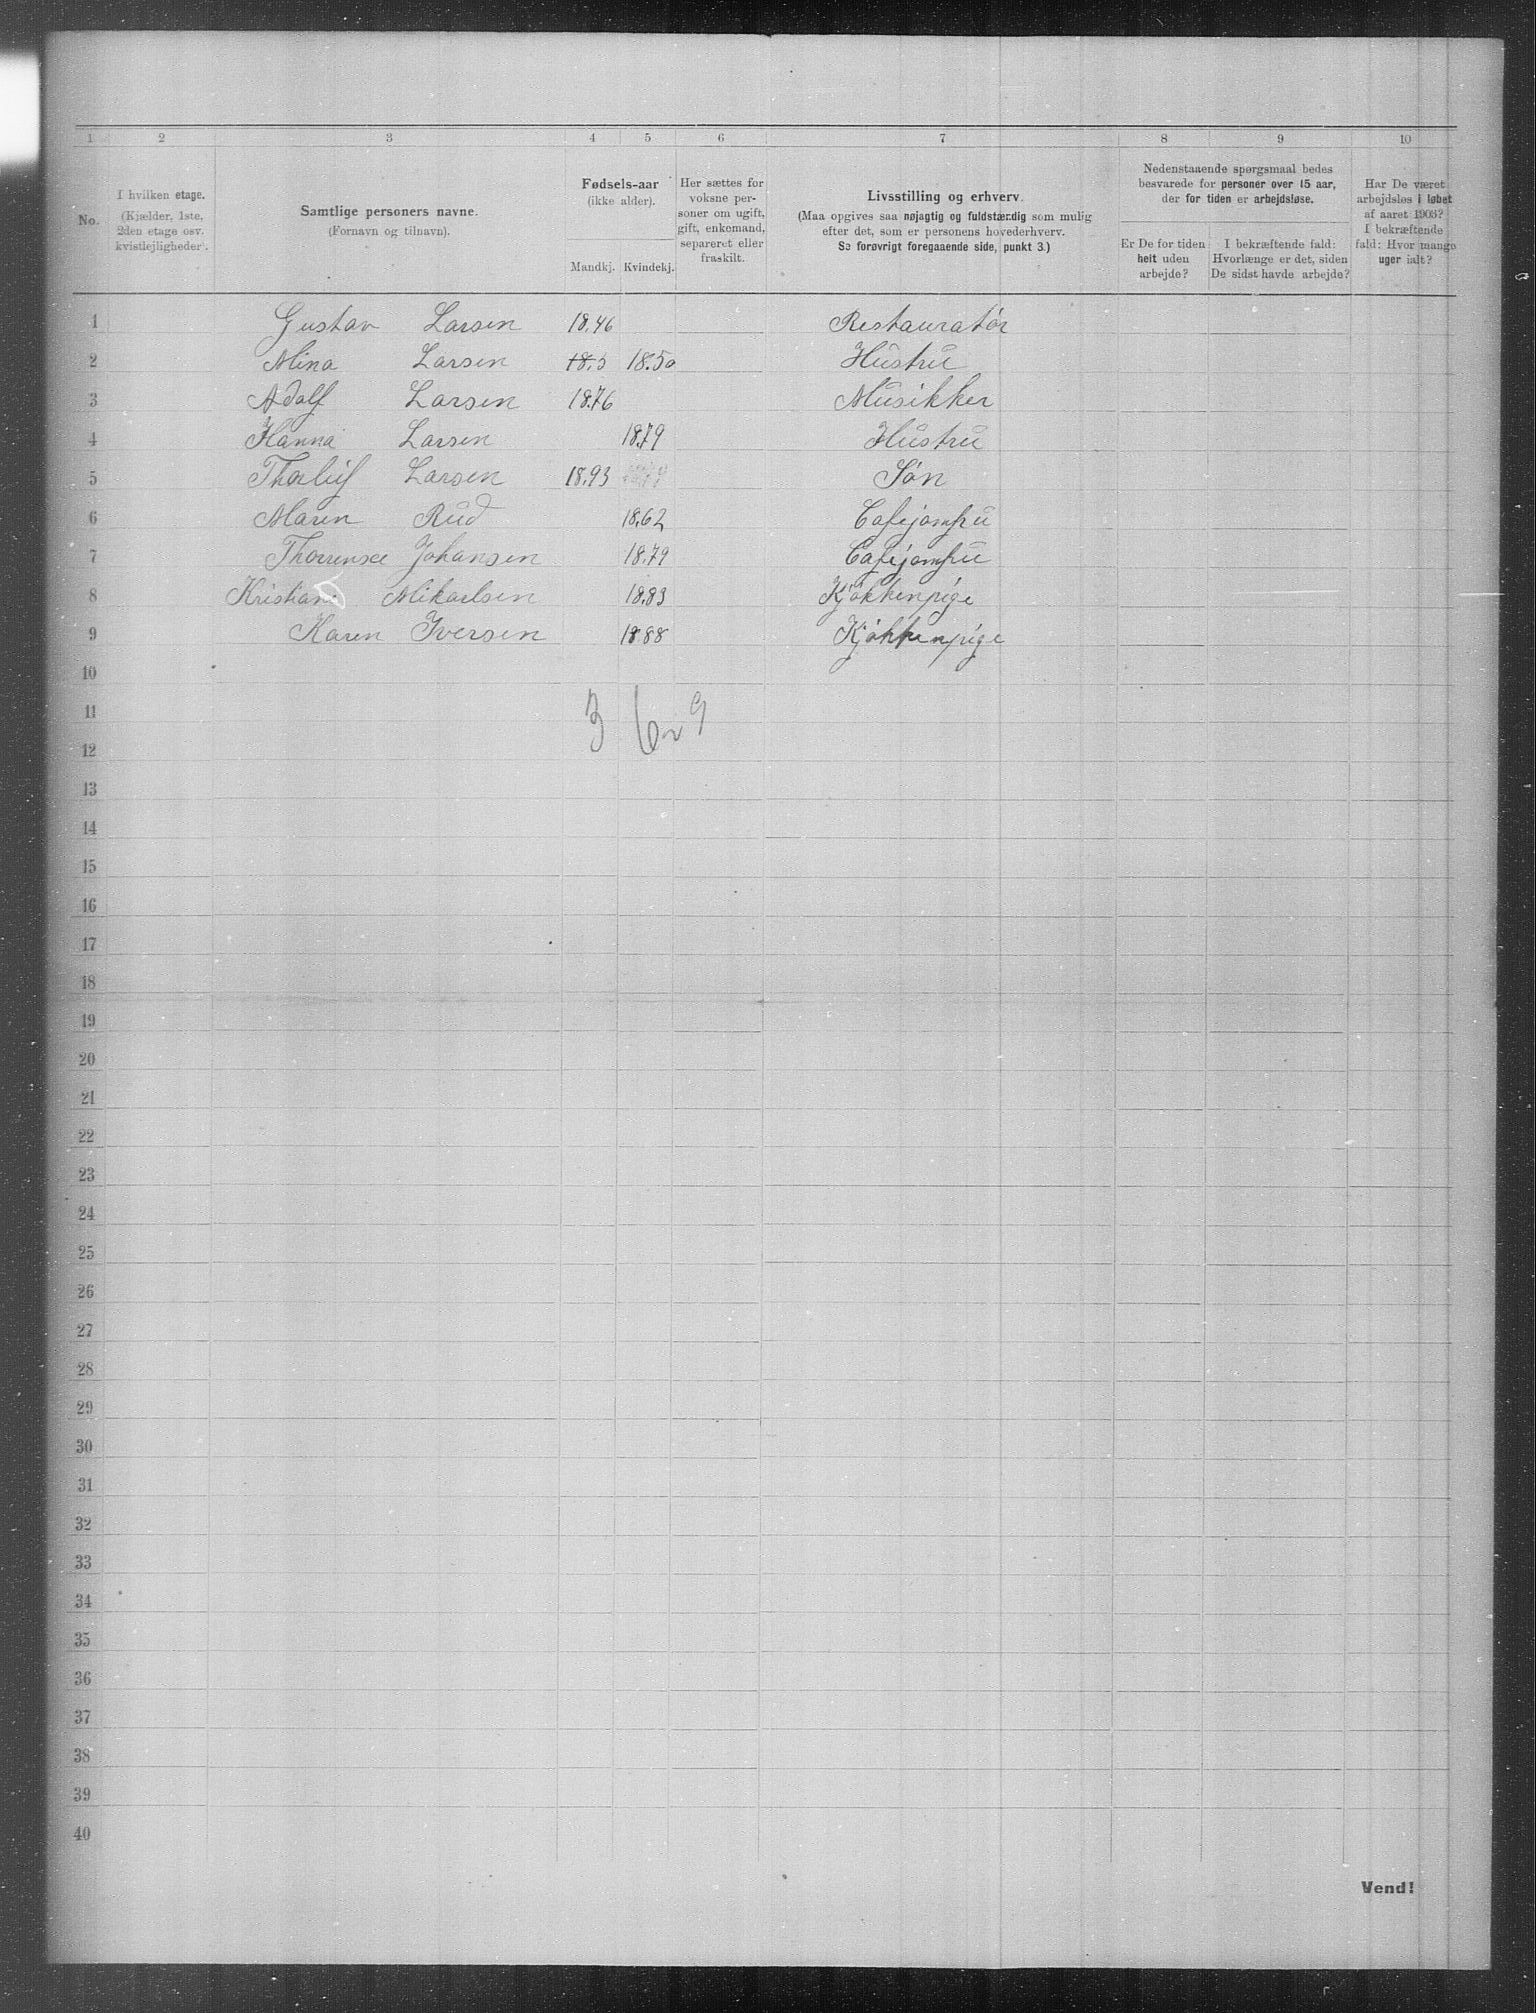 1 2 3 4 5 6 7 8 9 10
No.
I hvilken etage.
(Kjælder, 1ste,
2den etage osv.
kvistlejligheder).
Samtlige personers navne.
(Fornavn og tilnavn).
Fødsels-aar
(ikke alder).
Mandkj. Kvindekj.
Her sættes for
voksne per-
soner om ugift,
gift, enkemand,
separeret eller
fraskilt.
Livsstilling og erhverv.
(Maa opgives saa nøjagtig og fuldstændig som mulig
efter det, som er personens hovederhverv.
Se forøvrigt foregaaende side, punkt 3.)
Nedenstaaende spørgsmaal bedes
besvarede for personer over 15 aar,
der for tiden er arbejdsløse.
Er De for tiden
helt uden
arbejde?
I bekræftende fald:
Hvorlænge er det, siden
De sidst havde arbejde?
Har De været
arbejdsløs i løbet
af aaret 1903?
I bekræftende
fald: Hvor mange
uger ialt?
1 Gustav Larsen 18.46 Restauratør
2 Mina Larsen 18.5 18.50 Hustru
3 Adolf Larsen 18.76 Musikker
4 Hanna Larsen 18.79 Hustru
5 Thorleif Larsen 18.93 Søn
6 Maren Rud 18.62 Cafejomfru
7 Johansen 18.79 Cafejomfru
8 Kristiane Mikaelsen 18.83 Kjøkkenpige
9 Karen Iversen 1888 Kjøkkenpige
10
11 3 6 9
12
13
14
15
16
17
18
19
20
21
22
23
24
25
26
27
28
29
30
31
32
33
34
35
36
37
38
39
40
Vend!